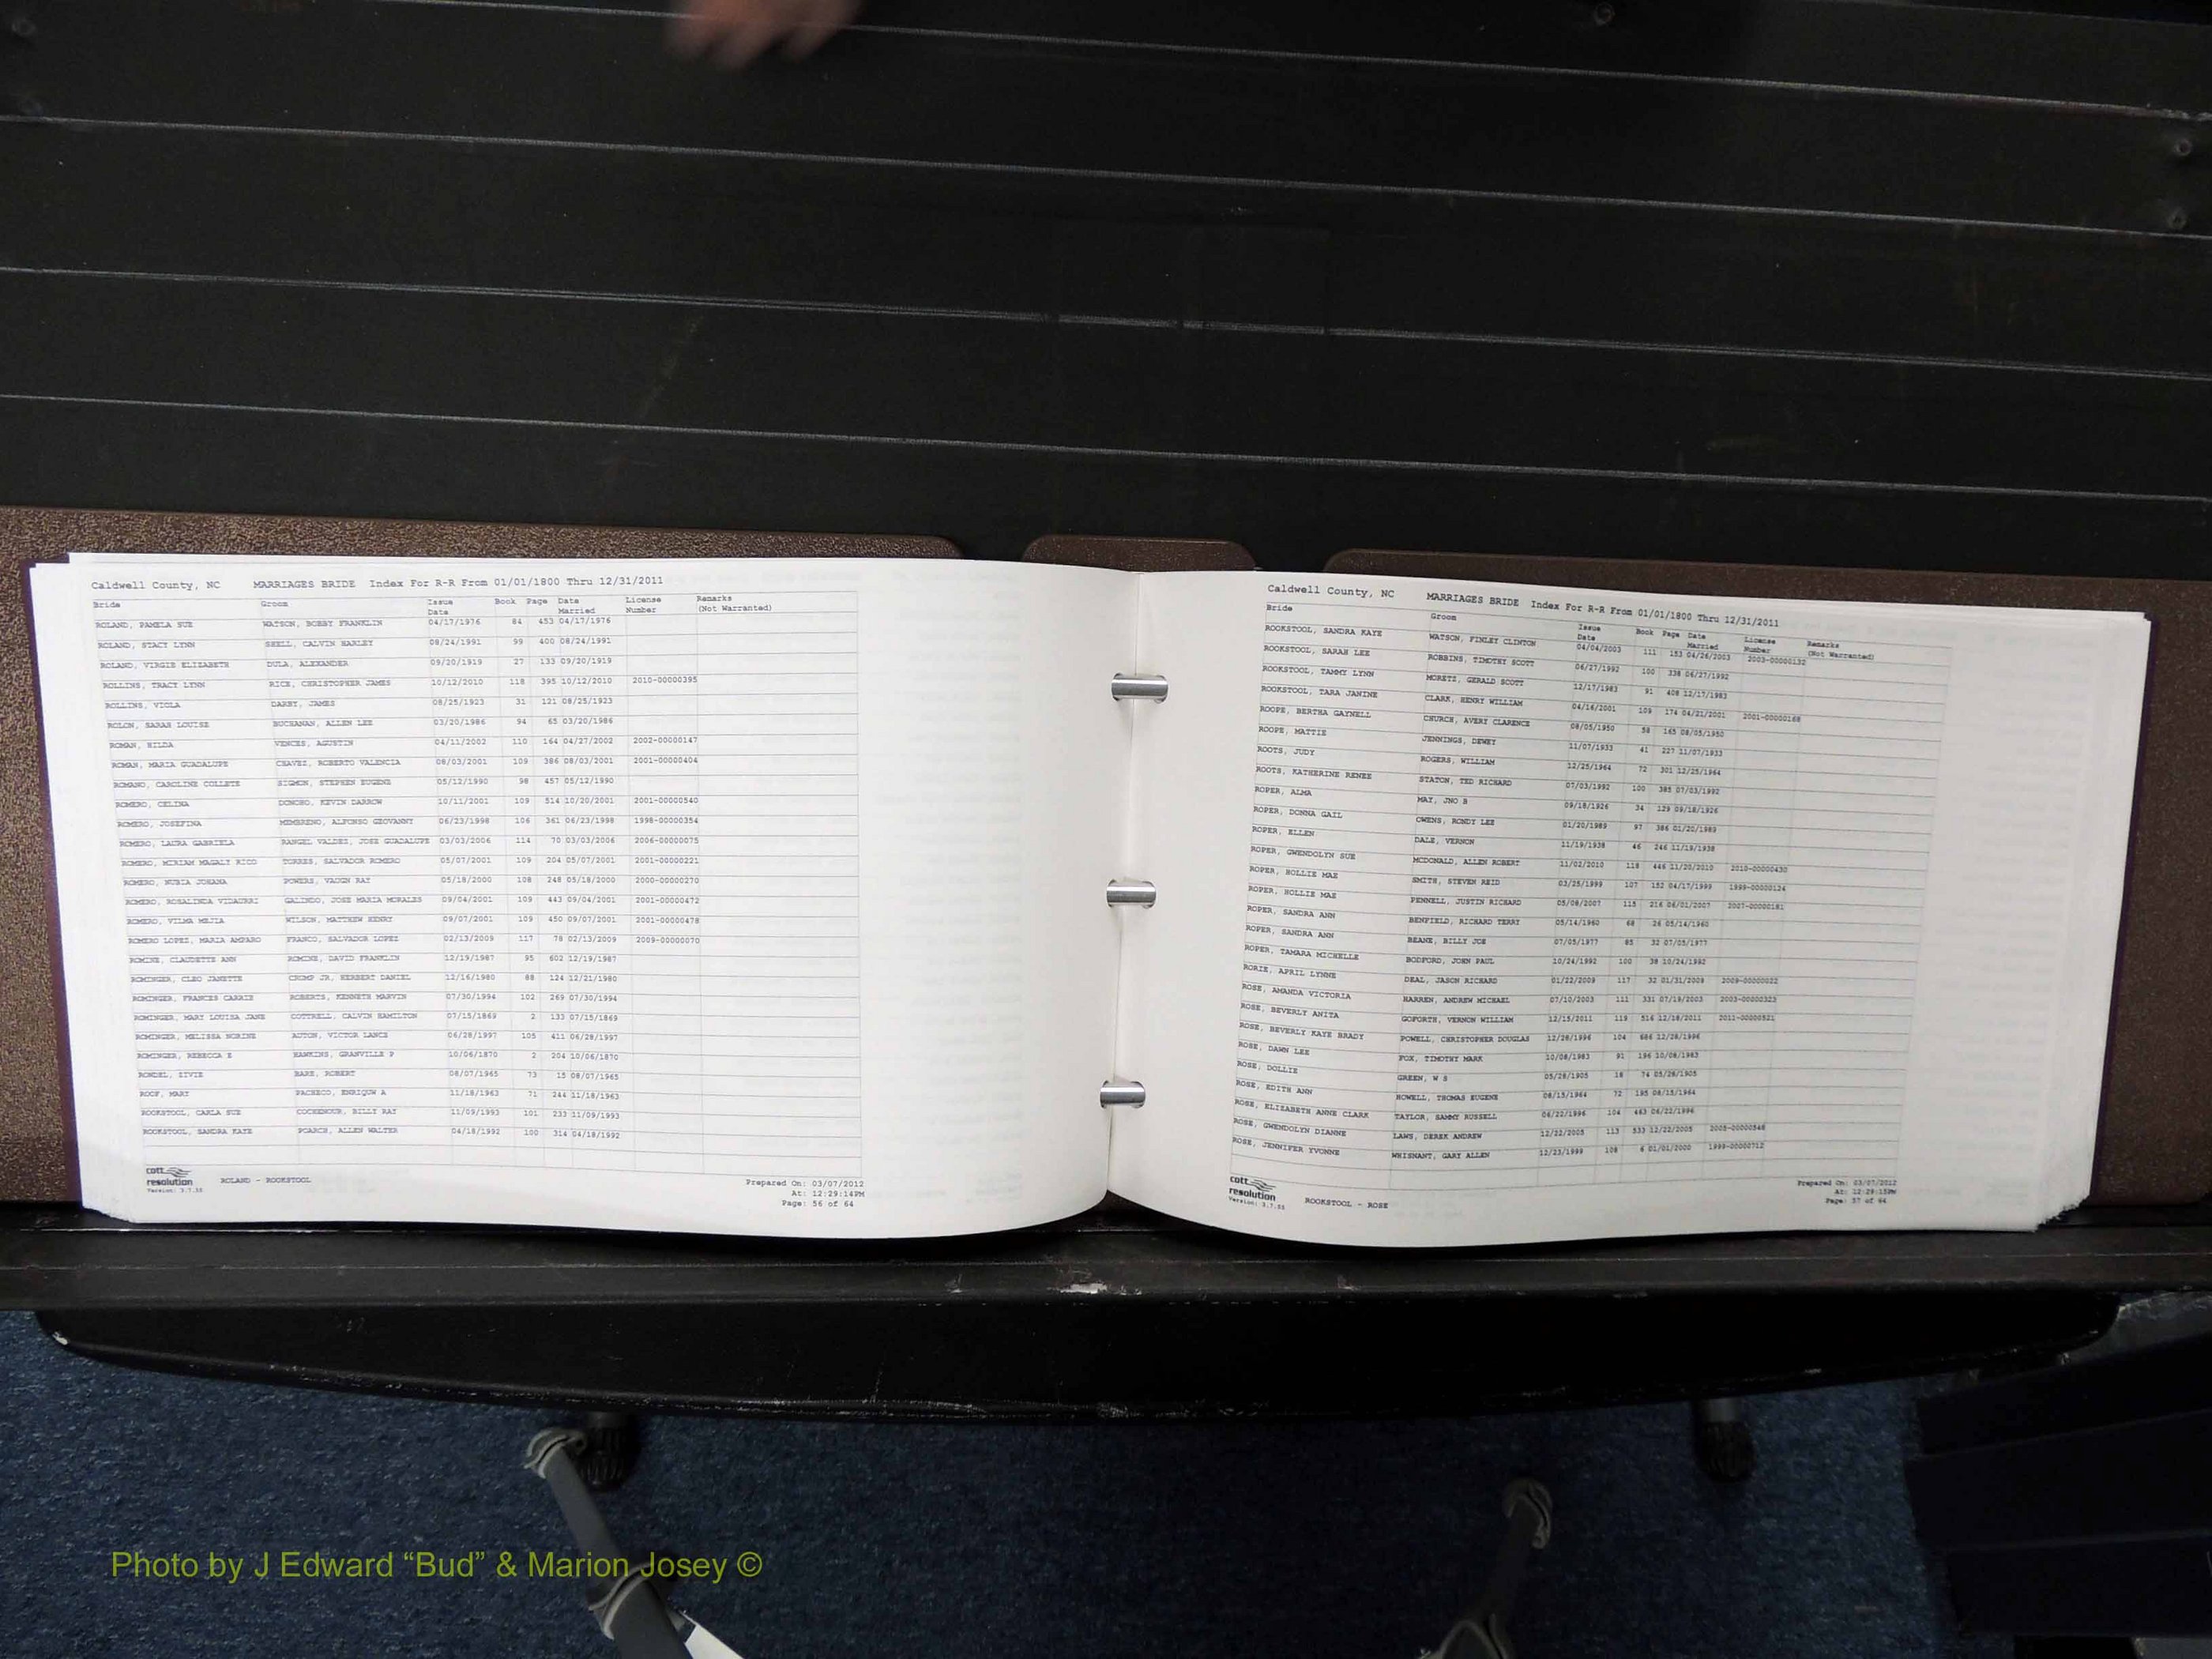 Caldwell County, NC MARRIAGES BRIDE Index For R-R From 01/01/1800 Thru 12/31/2011
Bride Groom Issue Date Book Page Date Married License Number Remarks (Not Warranted)
ROLAND, PAMELA SUE WATSON, BOBBY FRANKLIN 04/17/1976 84 453 04/17/1976
ROLAND, STACY LYNN SHELL, CALVIN HARLEY 08/24/1991 99 400 08/24/1991
ROLAND, VIRGIE ELIZABETH DULA, ALEXANDER 09/20/1919 27 133 09/20/1919
ROLLINS, TRACY LYNN RICE, CHRISTOPHER JAMES 10/12/2010 118 395 10/12/2010 2010-00000395
ROLLINS, VIOLA DARBY, JAMES 08/25/1923 31 121 08/25/1923
ROLON, SARAH LOUISE BUCHANAN, ALLEN LEE 03/20/1986 94 65 03/20/1986
ROMAN, HILDA VENCES, AGUSTIN 04/11/2002 110 164 04/27/2002 2002-00000147
ROMAN, MARIA GUADALUPE CHAVEZ, ROBERTO VALENCIA 08/03/2001 109 386 08/03/2001 2001-00000404
ROMANO, CAROLINE COLLETE SIGMON, STEPHEN EUGENE 05/12/1990 98 457 05/12/1990
ROMERO, CELINA DONOHO, KEVIN DARROW 10/11/2001 109 514 10/20/2001 2001-00000540
ROMERO, JOSEFINA MEMBRENO, ALFONSO GEOVANNY 06/23/1998 106 361 06/23/1998 1998-00000354
ROMERO, LAURA GABRIELA RANGEL VALDES, JOSE GUADALUPE 03/03/2006 114 70 03/03/2006 2006-00000075
ROMERO, MIRIAM MAGALY RICO TORRES, SALVADOR ROMERO 05/07/2001 109 204 05/07/2001 2001-00000221
ROMERO, NUBIA JOHANA POWERS, VAUGN RAY 05/18/2000 108 248 05/18/2000 2000-00000270
ROMERO, ROSALINDA VIDAURRI GALINDO, JOSE MARIA MORALES 09/04/2001 109 443 09/04/2001 2001-00000472
ROMERO, VILMA MEJIA WILSON, MATTHEW HENRY 09/07/2001 109 450 09/07/2001 2001-00000478
ROMERO LOPEZ, MARIA AMPARO FRANCO, SALVADOR LOPEZ 02/13/2009 117 78 02/13/2009 2009-00000070
ROMINE, CLAUDETTE ANN ROMINE, DAVID FRANKLIN 12/19/1987 95 602 12/19/1987
ROMINGER, CLEO JANETTE CRUMP JR, HERBERT DANIEL 12/16/1980 88 124 12/21/1980
ROMINGER, FRANCES CARRIE ROBERTS, KENNETH MARVIN 07/30/1994 102 269 07/30/1994
ROMINGER, MARY LOUISA JANE COTTRELL, CALVIN HAMILTON 07/15/1869 2 133 07/15/1869
ROMINGER, MELISSA NORINE AUTON, VICTOR LANCE 06/28/1997 105 411 06/28/1997
ROMINGER, REBECCA E HAWKINS, GRANVILLE P 10/06/1870 2 204 10/06/1870
RONDEL, ZIVIE BARE, ROBERT 08/07/1965 73 15 08/07/1965
ROOF, MARY PACHECO, ENRIQUW A 11/18/1963 71 244 11/18/1963
ROOKSTOOL, CARLA SUE COCHENOUR, BILLY RAY 11/09/1993 101 233 11/09/1993
ROOKSTOOL, SANDRA KAYE POARCH, ALLEN WALTER 04/18/1992 100 314 04/18/1992
cott
resolution ROLAND - ROOKSTOOL Prepared On: 03/07/2012
Version: 3.7.55 At: 12:29:14PM
Page: 56 of 64
Caldwell County, NC MARRIAGES BRIDE Index For R-R From 01/01/1800 Thru 12/31/2011
Bride Groom Issue Date Book Page Date Married License Number Remarks (Not Warranted)
ROOKSTOOL, SANDRA KAYE WATSON, FINLEY CLINTON 04/04/2003 111 153 04/26/2003 2003-00000132
ROOKSTOOL, SARAH LEE ROBBINS, TIMOTHY SCOTT 06/27/1992 100 338 06/27/1992
ROOKSTOOL, TAMMY LYNN MORETZ, GERALD SCOTT 12/17/1983 91 408 12/17/1983
ROOKSTOOL, TARA JANINE CLARK, HENRY WILLIAM 04/16/2001 109 174 04/21/2001 2001-00000188
ROOPE, BERTHA GAYNELL CHURCH, AVERY CLARENCE 08/05/1950 58 165 08/05/1950
ROOPE, MATTIE JENNINGS, DEWEY 11/07/1933 41 227 11/07/1933
ROOTS, JUDY ROGERS, WILLIAM 12/25/1964 72 301 12/25/1964
ROOTS, KATHERINE RENEE STATON, TED RICHARD 07/03/1992 100 385 07/03/1992
ROPER, ALMA MAY, JNO B 09/18/1926 34 129 09/18/1926
ROPER, DONNA GAIL OWENS, RONDY LEE 01/20/1989 97 386 01/20/1989
ROPER, ELLEN DALE, VERNON 11/19/1938 46 246 11/19/1938
ROPER, GWENDOLYN SUE MCDONALD, ALLEN ROBERT 11/02/2010 118 446 11/20/2010 2010-00000430
ROPER, HOLLIE MAE SMITH, STEVEN REID 03/25/1999 107 152 04/17/1999 1999-00000134
ROPER, HOLLIE MAE PENNELL, JUSTIN RICHARD 05/08/2007 115 216 06/01/2007 2007-00000181
ROPER, SANDRA ANN BENFIELD, RICHARD TERRY 05/14/1960 68 26 05/14/1960
ROPER, SANDRA ANN BEANE, BILLY JOE 07/05/1977 85 32 07/05/1977
ROPER, TAMARA MICHELLE BODFORD, JOHN PAUL 10/24/1992 100 38 10/24/1992
RORIE, APRIL LYNNE DEAL, JASON RICHARD 01/22/2009 117 32 01/31/2009 2009-00000022
ROSE, AMANDA VICTORIA HARREN, ANDREW MICHAEL 07/10/2003 111 331 07/19/2003 2003-00000323
ROSE, BEVERLY ANITA GOFORTH, VERNON WILLIAM 12/15/2011 119 516 12/18/2011 2011-00000521
ROSE, BEVERLY KAYE BRADY POWELL, CHRISTOPHER DOUGLAS 12/28/1996 104 686 12/28/1996
ROSE, DAWN LEE FOX, TIMOTHY MARK 10/08/1983 91 196 10/08/1983
ROSE, DOLLIE GREEN, W S 05/28/1905 18 74 05/28/1905
ROSE, EDITH ANN HOWELL, THOMAS EUGENE 08/15/1964 72 195 08/15/1964
ROSE, ELIZABETH ANNE CLARK TAYLOR, SAMMY RUSSELL 06/22/1996 104 463 06/22/1996
ROSE, GWENDOLYN DIANNE LAWS, DEREK ANDREW 12/22/2005 113 533 12/22/2005 2005-00000548
ROSE, JENNIFER YVONNE WHISNANT, GARY ALLEN 12/23/1999 108 6 01/01/2000 1999-00000712
cott
resolution ROOKSTOOL - ROSE Prepared On: 03/07/2012
Version: 3.7.55 At: 12:29:15PM
Page: 57 of 64
Photo by J Edward “Bud” & Marion Josey ©